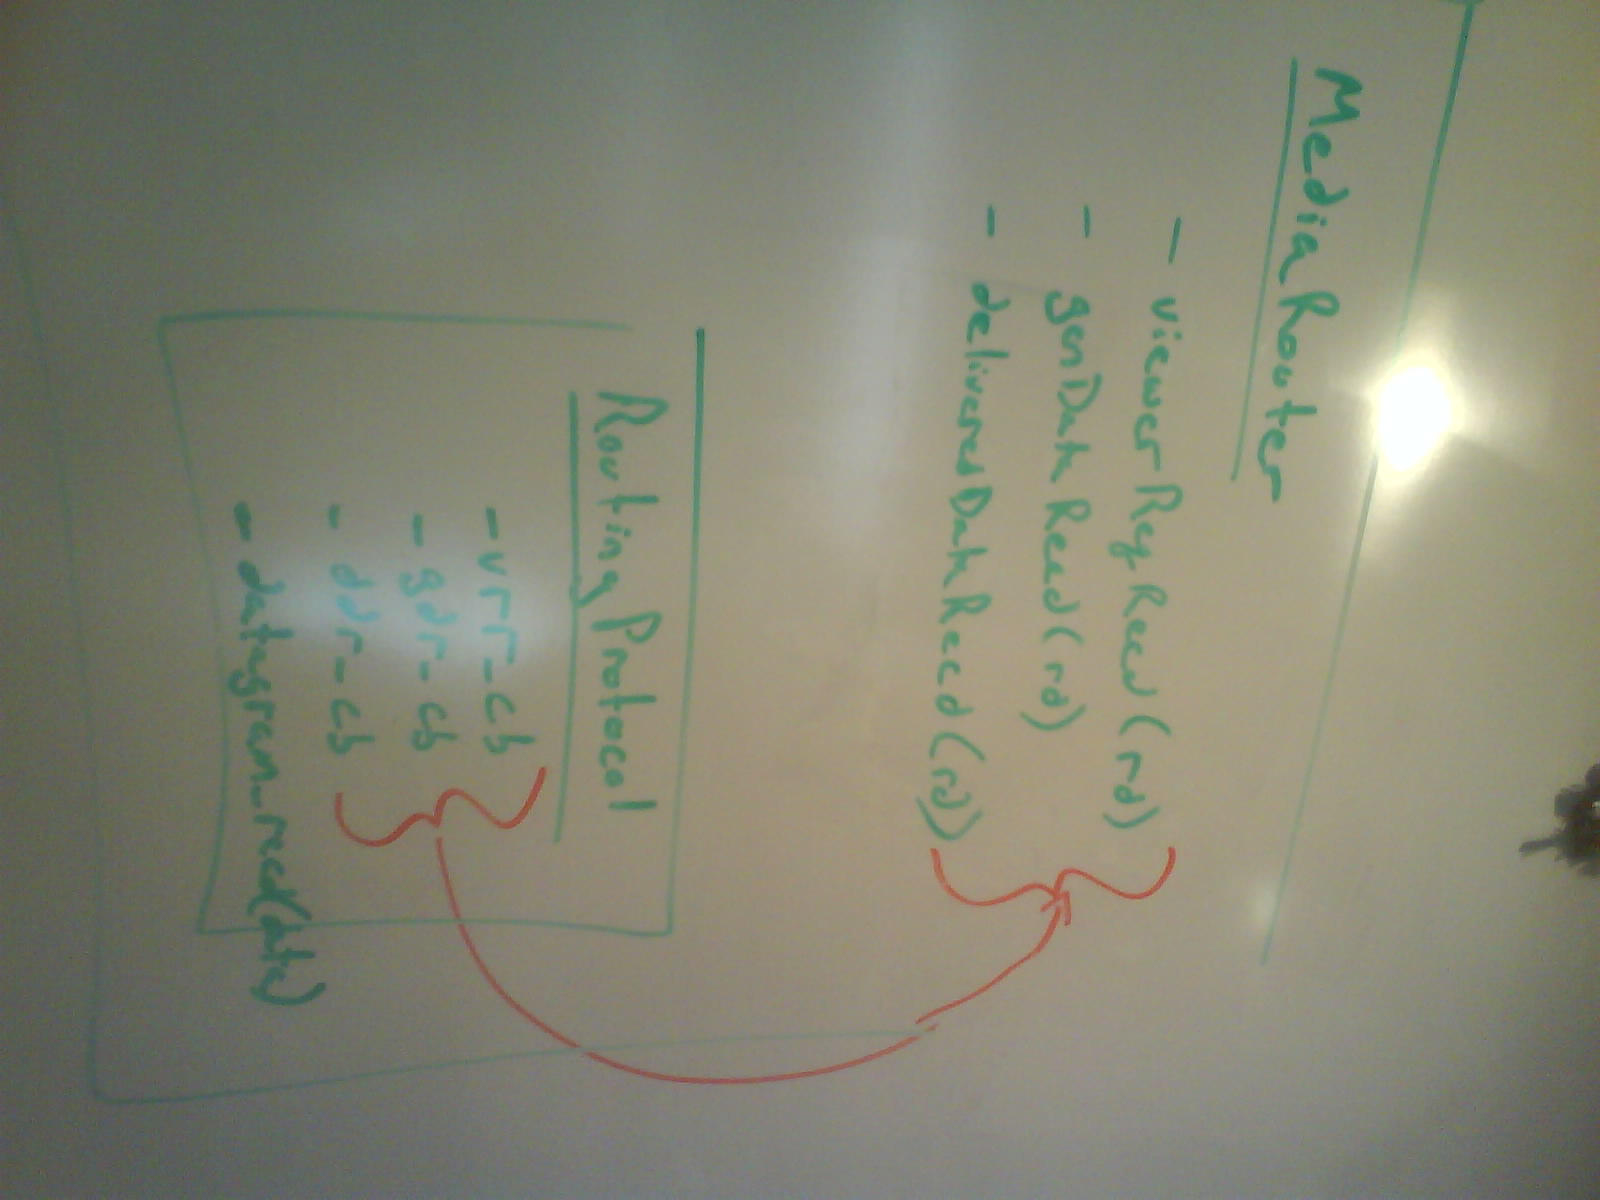 MediaRouter
- viewerReqRecd(rd)
- genDataRecd(rd)
- deliveredDataRecd(rd)
RoutingProtocol
- vrr_cb
- gdr_cb
- ddr_cb
- datagram_recd(data)